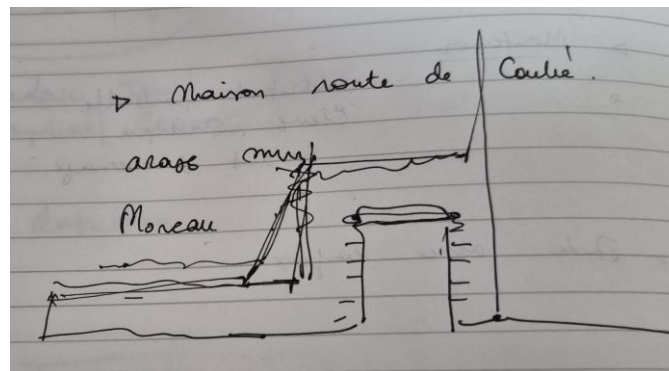 ▷ Maison route de Coulié.
arase mur
Moreau